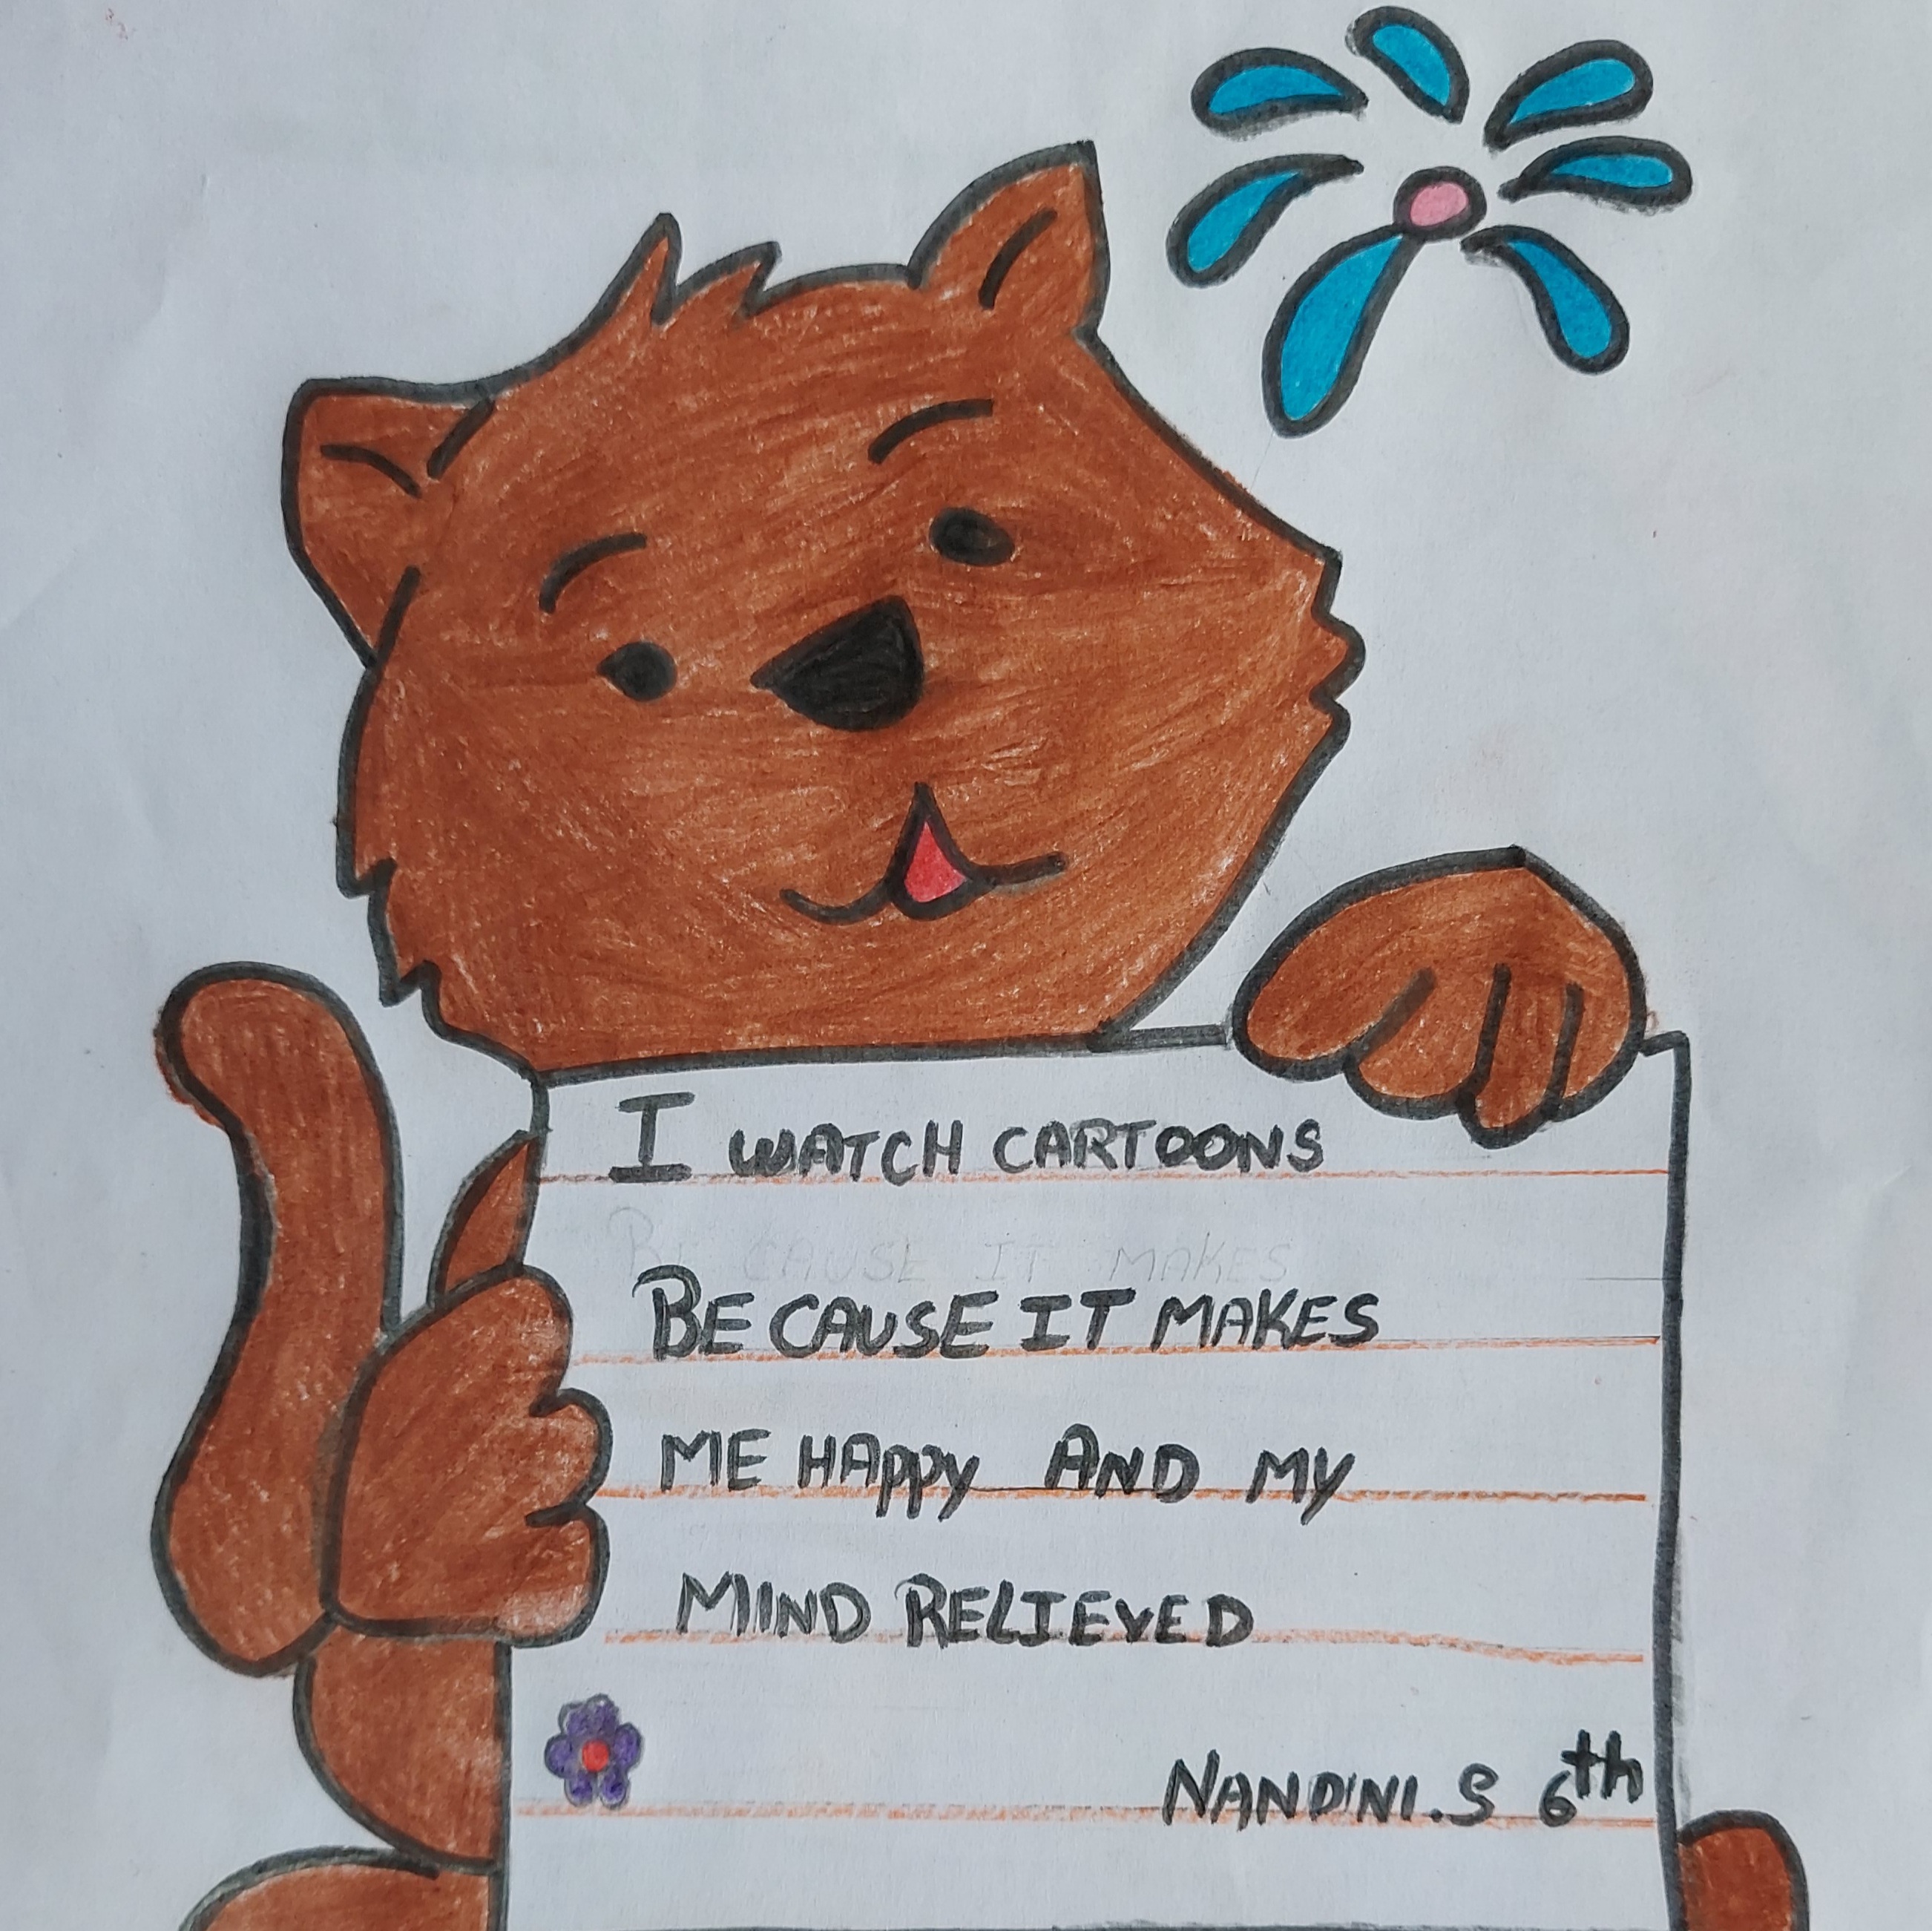 I WATCH CARTOONS
BE CAUSE IT MAKES
BECAUSE IT MAKES
ME HAppy AND My
MIND RELIEVED
NANDINI.S 6th